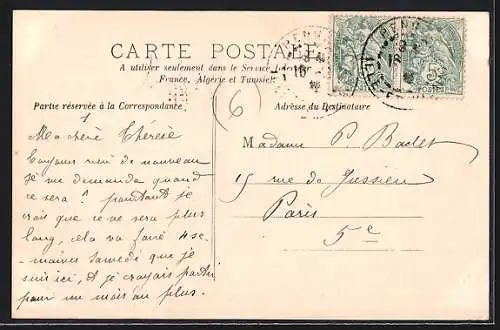 CARTE POSTALE
A utiliser seulement dans le Service intérieur
France, Algérie et Tunisie
Partie réservée à la Correspondance
Adresse du Destinataire
6
5c
POSTES
Ma chère Thérèse
Toujours rien de nouveau
je me demande quand
ce sera ? pourtant je
crois que ce ne sera plus
long, cela va faire 4 se-
maines samedi que je
suis ici, et je croyais partir
pour un mois au plus.
Madame P.
15 rue de Jussieu
Paris
5e